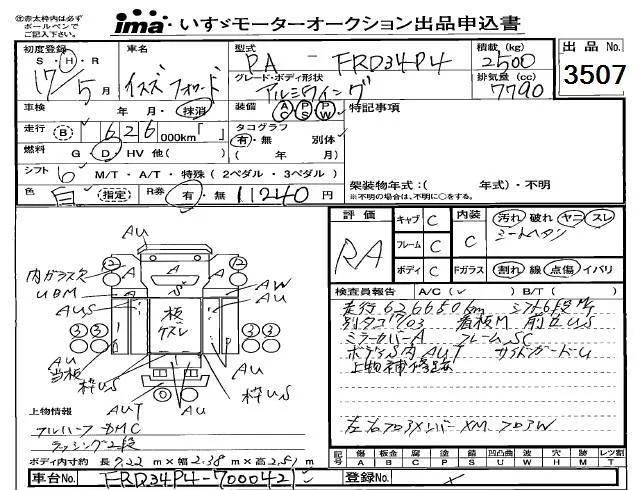 ㊟赤太枠内は必ず
ボールペンで
ご記入下さい。
ima いすゞモーターオークション出品申込書
初度登録 車名 型式 積載(kg) 出品No.
S・H・R 17年 5月 いすゞ フォワード PA－FRD34P4 2500 3507
グレード・ボディ形状 排気量(cc)
アルミウイング 7790
車検 年・月・抹消 装備 AC PS PW 特記事項
走行 B 626 000km「 」 タコグラフ
有・無 別体
燃料 G・D・HV 他( ) ( 年 月)
シフト 6 M/T・A/T・特殊(2ペダル・3ペダル) 架装物年式:( 年式)・不明
色 白 (指定) R券 有・無 11240円 ※不明の場合は、不明に○をする。
評価 キャブ C 内装 汚れ 破れ ヤニ スレ
RA フレーム C C シートヘタリ
ボディ C Fガラス 割れ 線 点傷 イバリ
AU
AU
内ガラススス
UBM
AUS
A A A
AW
AU
板ケズレ
AU
当板
枠US
枠US
AU
AUT
AU
検査員報告 A/C(レ) B/T( )
走行626650km シフト6段M/T
別タコ1703 看板M 前立US
ミラーカバーA フレームSC
ボデーS内AUT サイドガードU
上物補修跡
左右フロアメンバーXM フロアW
上物情報
アルハーフ DMC
ラッシング2段
ボディ内寸約 長7.22m×幅2.38m×高2.51m
記号 傷 A 板金 B 腐 C 塗 P 錆 S 凹凸曲 U 波 W 穴 H 跡 M レツ割 T
車台No. FRD34P4-7000421 登録No.